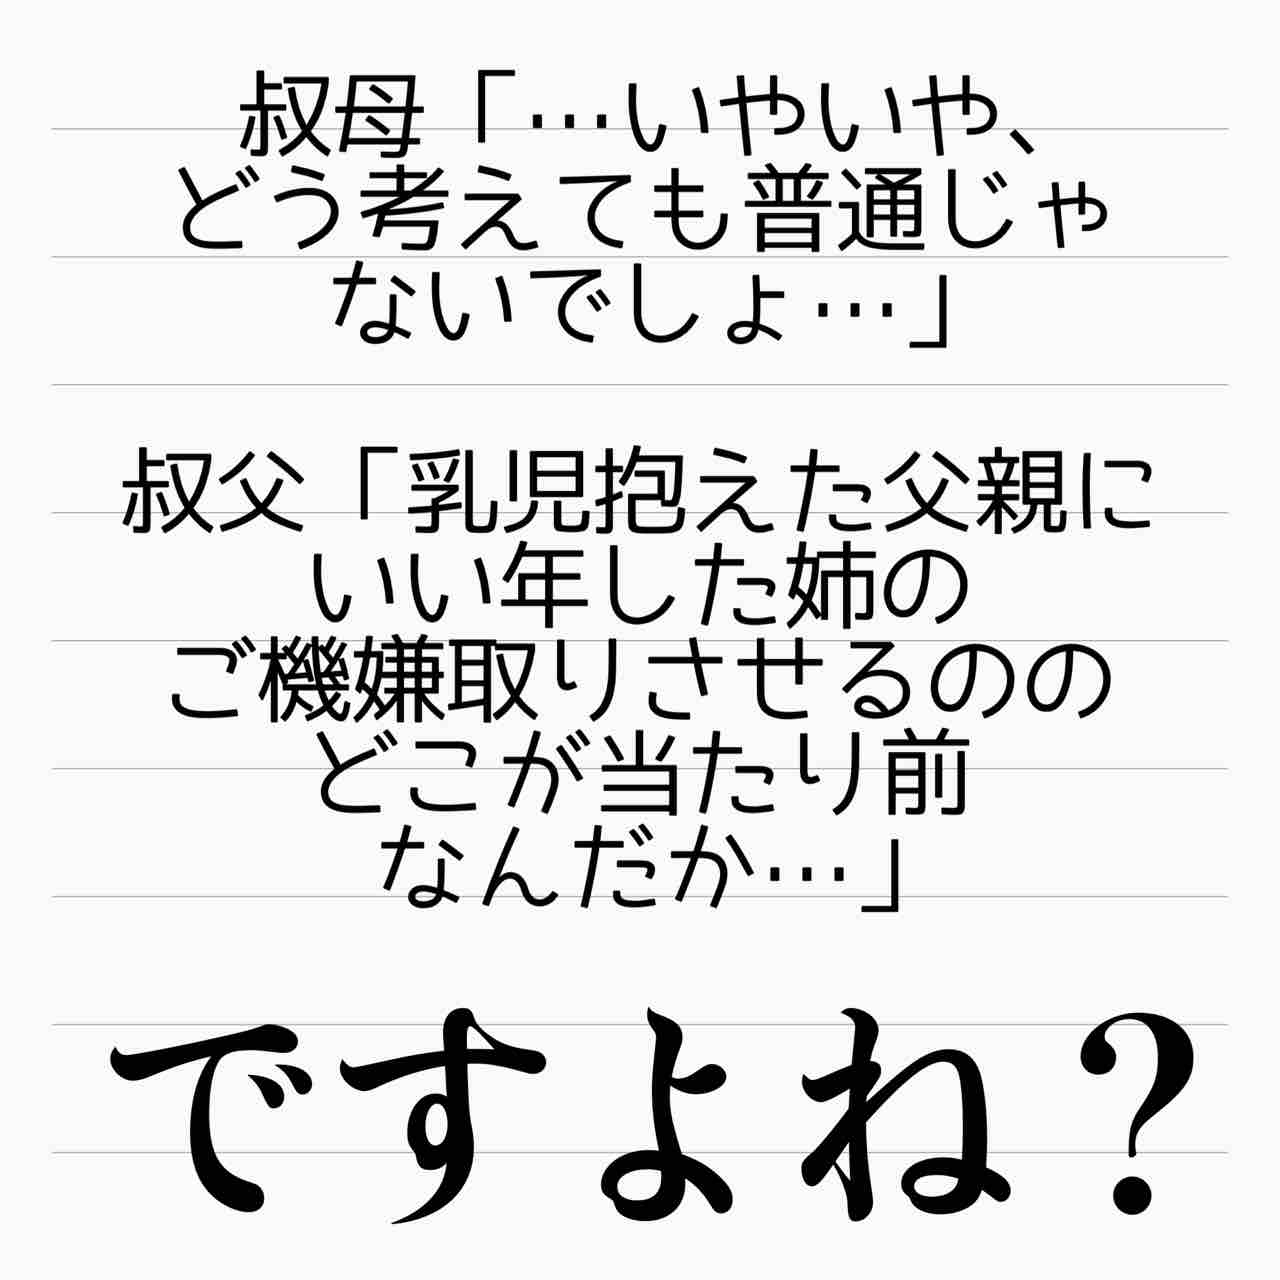 叔母「…いやいや、
どう考えても普通じゃ
ないでしょ…」
叔父「乳児抱えた父親に
いい年した姉の
ご機嫌取りさせるのの
どこが当たり前
なんだか…」
ですよね？